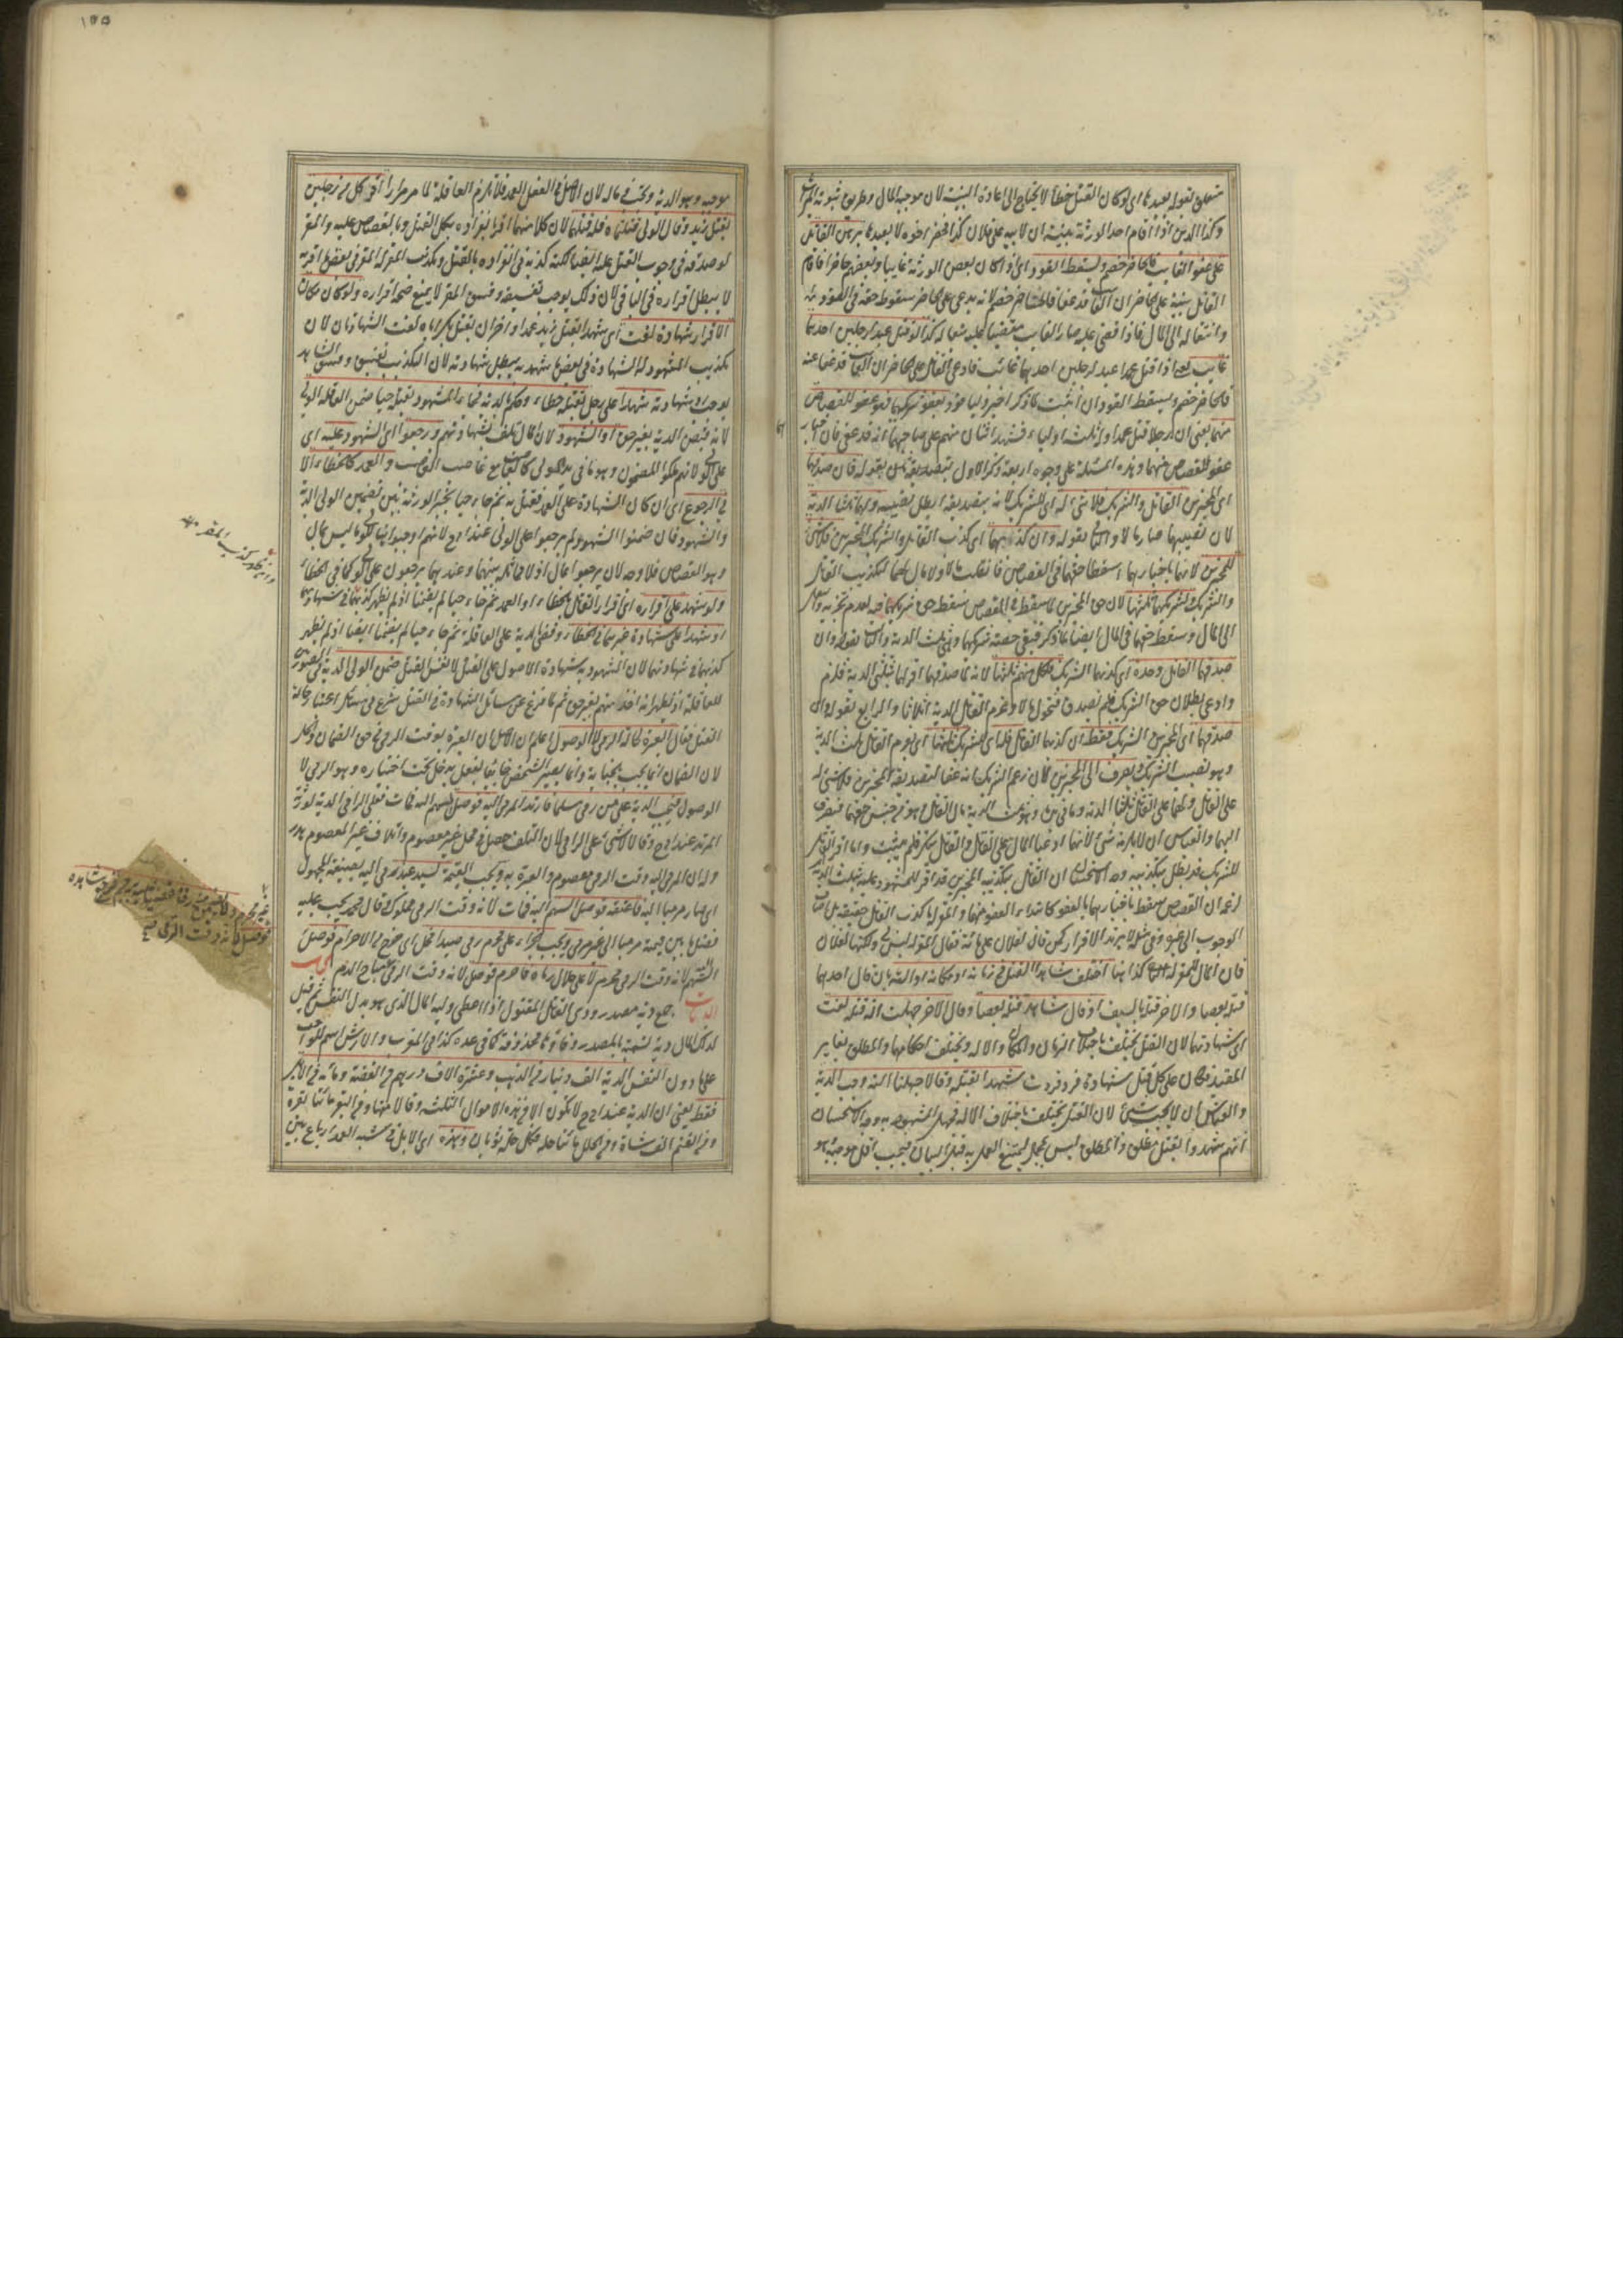 متعلق بقوله يعيدها اى لو كان القتل خطأ لا يحتاج الى اعادة البينة لان موجبه المال وطريق ثبوته الميراث
وكذا الدين اذا اقام احد الورثة بينة ان لابيه على فلان كذا فحضر اخوه لا يعيدها برهن القاتل
على عفو الغايب فالحاضر خصم ويسقط القود اى اذا كان بعض الورثة غايبا وبعضهم حاضرا فاقام
القاتل بينة على الحاضر ان الغايب قد عفا فالحاضر خصم لانه يدعى على الحاضر سقوط حقه فى القود
وانتقاله الى المال فاذا قضى عليه صار الغايب مقضيا عليه تبعا له كذا لو قتل عبد لرجلين احدهما
غايب يعنى اذا قتل عمدا عبد لرجلين احدهما غائب فادعى القاتل على الحاضر ان الغايب قد عفا عنه
فالحاضر خصم ويسقط القود ان اثبت لما ذكر اخبر وليا قود بعفو شريكهما فهو عفو للقصاص
منهما يعنى ان رجلا قتل عمدا وله ثلثة اولياء فشهد اثنان منهم على صاحبهما انه قد عفى فان اخبار
عفو للقصاص منهما وهذه المسئلة على وجوه اربعة ذكر الاول بقوله فان صدقهما
اى المخبرين القاتل والشريك فلا شئ له اى للشريك لانه بتصديقه ابطل نصيبه ولهما ثلثا الدية
لان نصيبهما صار مالا والثانى بقوله وان كذبهما اى كذب القاتل والشريك المخبرين فلا شئ
للمخبرين لانهما باخبارهما اسقطا حقهما فى القصاص فانقلب مالا ولا مال لهما لتكذيب القاتل
والشريك ولشريكهما ثلثها لان حق المخبرين لما سقط فى القصاص سقط حق شريكهما فيه لعدم تجزيه وانتقل
الى المال وسقط حقهما فى المال ايضا لما ذكر فبقى حصة شريكهما وهى ثلث الدية والثالث بقوله وان
صدقهما القاتل وحده اى كذبهما الشريك فلكل منهم ثلثها لانه لما صدقهما اقر لهما بثلثى الدية فلزم
وادعى بطلان حق الشريك فلم يصدق فتحول مالا وغرم القاتل الدية اثلاثا والرابع بقوله وان
صدقهما اى المخبرين الشريك فقط ان كذبهما القاتل فله اى للشريك ثلثها اى يغرم القاتل ثلث الدية
وهو نصيب الشريك ويصرف الى المخبرين لان زعم الشريك انه عفا لتصديقه المخبرين فلا شئ له
على القاتل ولهما على القاتل ثلثا الدية وما فى يده وهو ثلث الدية مال القاتل وهو من جنس حقهما فيصرف
اليهما والقياس ان لا يلزمه شئ لانهما ادعيا المال على القاتل والقاتل منكر فلم يثبت وما اقر به القاتل
للشريك قد بطل بتكذيبه وجه الاستحسان ان القاتل بتكذيبه المخبرين قد اقر للمشهود عليه بثلث الدية
لزعمه ان القصاص سقط باخبارهما بالعفو كابتداء العفو منهما والمقر له ما كذب القاتل حقيقة بل اضاف
الوجوب الى غيره وفى مثله لا يرتد الاقرار كمن قال لفلان على مائة فقال المقر له ليس لى ولكنها لفلان
فان المال للمقر له الثانى كذا هنا اختلف شاهدا القتل فى زمانه او مكانه او آلته بان قال احدهما
قتله بعصا والاخر قتله بالسيف او قال شاهد قتله بعصا وقال الاخر جهلت آلة قتله لغت
اى شهادتهما لان القتل يختلف باختلاف الزمان والمكان والآلة ويختلف احكامها والمطلق يغاير
المقيد فكان على كل قتل شهادة فرد فردت شهدا بقتله وقالا جهلنا آلته وجب الدية
والقياس ان لا يجب شئ لان القتل يختلف باختلاف الآلة فجهل المشهود به وجه الاستحسان
انهم شهدوا بقتل مطلق والمطلق ليس بمجمل ليمتنع العمل به قبل البيان فيجب اقل موجبيه وهو
١٥٥
موجبه وهو الدية وتجب فى ماله لان الاصل فى الفعل العمد فلا تلزم العاقلة لما مر مرارا اقر كل من رجلين
بقتل زيد وقال الولى قتلتماه فله قتلهما لان كلا منهما اقر بانفراده بكل القتل وبالقصاص عليه والمقر
له صدقه فى وجوب القتل عليه ايضا لكنه كذبه فى انفراده بالقتل وتكذيب المقر له المقر فى بعض ما اقر به
لا يبطل اقراره فى الباقى لان ذلك يوجب تفسيقه وفسق المقر لا يمنع صحة اقراره ولو كان مكان
الاقرار شهادة لغت اى شهدا بقتل زيد عمدا واخران بقتل بكر اياه لغت الشهادتان لان
تكذيب المشهود له الشهادة فى بعض ما شهد به يبطل شهادته لان التكذيب تفسيق وفسق الشاهد
يوجب رد شهادته شهدا على رجل بقتله خطاء وحكم بالدية فجاء المشهود بقتله حيا ضمن العاقلة الولى
لانه قبض الدية بغير حق او الشهود لان المال تلف بشهادتهم ورجعوا اى الشهود عليه اى
على الولى لانهم ملكوا المضمون وهو ما فى يد الولى كالغاصب مع غاصب الغاصب والعمد كالخطاء الا
فى الرجوع اى ان كان الشهادة على العمد فقتل به ثم جاء حيا يخير الورثة بين تضمين الولى الدية
والشهود فان ضمنوا الشهود لم يرجعوا على الولى عند ابى ح لانهم اوجبوا للولى ما ليس بمال
وهو القصاص فلا وجه لان يرجعوا بمال اذ لا مماثلة بينهما وعندهما يرجعون على الولى كما فى الخطاء
ولو شهد على اقراره اى اقرار القاتل بالخطاء او العمد ثم جاء حيا لم يضمنا اذ لم يظهر كذبهما فى شهادتهما
او شهدا على شهادة غيرهما فى الخطاء وقضى بالدية على العاقلة ثم جاء حيا لم يضمنا ايضا اذ لم يظهر
كذبهما فى شهادتهما لان المشهود به شهادة الاصول على القتل لا نفس القتل وضمن الولى الدية فى الصورتين
للعاقلة اذ ظهر انه اخذ منهم بغير حق ثم لما فرغ عن مسائل الشهادة فى القتل شرع فى مسائل اعتبار حالة
القتل فقال العبرة لحالة الرمى لا الوصول اعلم ان الاصل ان العبرة بوقت الرمى فى حق الضمان والحل
لان الضمان انما يجب بجناية وانما يصير الشخص جانيا بفعل يدخل تحت اختياره وهو الرمى لا
الوصول فتجب الدية على من رمى مسلما فارتد المرمى اليه فوصل السهم اليه فمات فعلى الرامى الدية لورثة
المرتد عند ابى ح وقالا لا شئ على الرامى لان التلف حصل فى محل غير معصوم واتلاف غير المعصوم هدر
وله ان المرمى اليه وقت الرمى معصوم والعبرة به ويجب القيمة لسيد عبد رمى اليه بصيغة المجهول
اى صار مرميا اليه فاعتقه فوصل السهم اليه فمات لانه وقت الرمى مملوك وقال محمد يجب عليه
فضل ما بين قيمته مرميا الى غير مرمى ويجب الجزاء على محرم رمى صيدا فحل اى خرج من الاحرام فوصل
السهم لانه وقت الرمى محرم لا على حلال رماه فاحرم فوصل لانه وقت الرمى غير مباح الدم كتاب
الديات جمع دية مصدر ودى القاتل المقتول اذا اعطى وليه المال الذى هو بدل النفس ثم قيل
لذلك المال دية تسمية بالمصدر وفاؤها محذوفة كما فى عدة كذا فى المغرب والارش اسم للواجب
على ما دون النفس الدية الف دينار من الذهب وعشرة الاف درهم من الفضة ومائة من الابل
فقط يعنى ان الدية عند ابى ح لا تكون الا من هذه الاموال الثلثة وقالا منها ومن البقر مائتا بقرة
ومن الغنم الف شاة ومن الحلل مائتا حلة كل حلة ثوبان وهذه اى الابل فى شبه العمد ارباع من